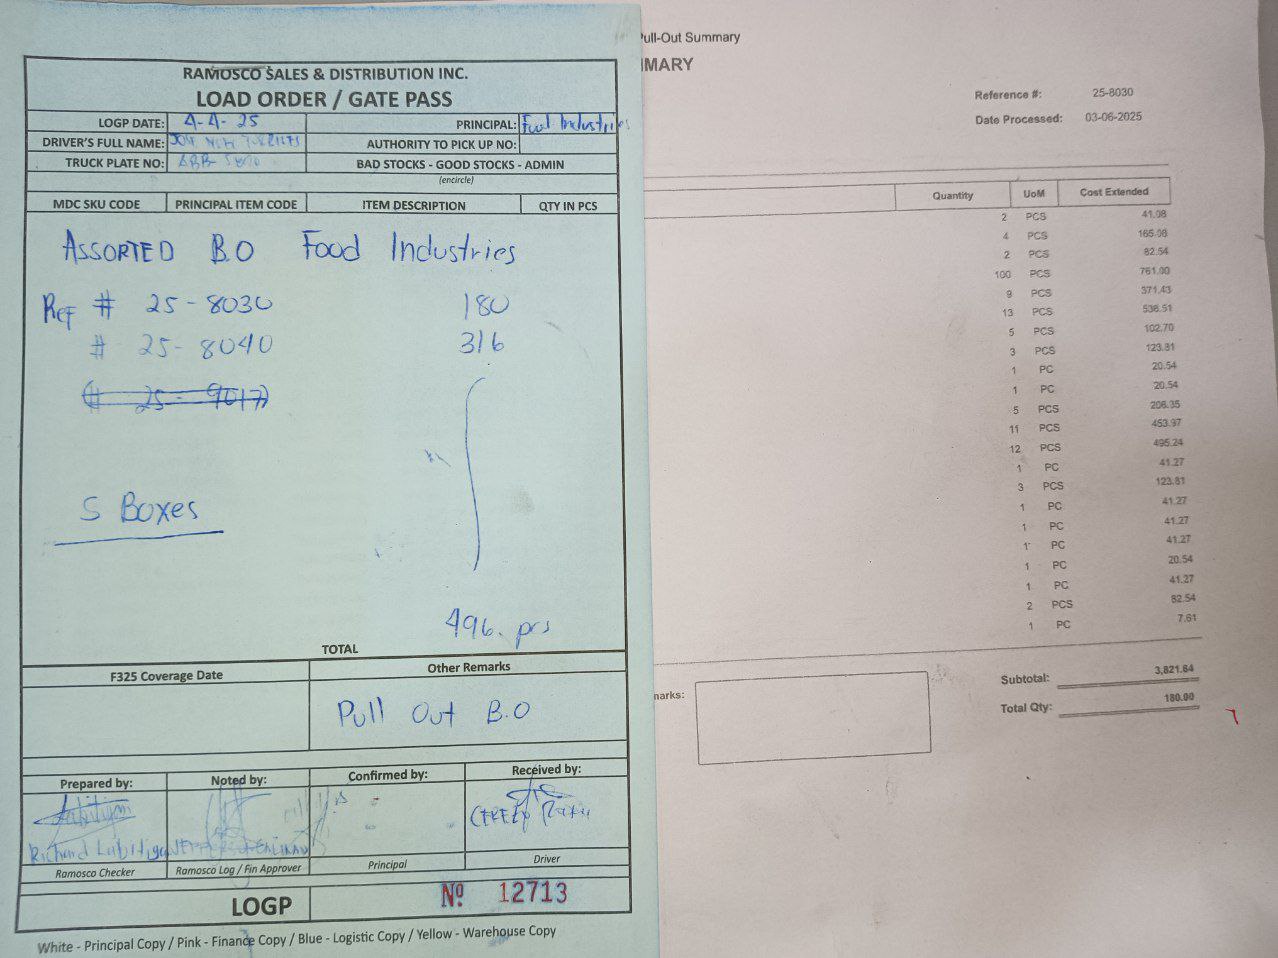 RAMOSCO SALES & DISTRIBUTION INC.
LOAD ORDER / GATE PASS
LOGP DATE: 4-4-25 PRINCIPAL: Food Industries
DRIVER'S FULL NAME: AUTHORITY TO PICK UP NO:
TRUCK PLATE NO: BAD STOCKS - GOOD STOCKS - ADMIN
(encircle)
MDC SKU CODE PRINCIPAL ITEM CODE ITEM DESCRIPTION QTY IN PCS
ASSORTED B.O Food Industries
Ref # 25-8030 180
# 25-8040 316
(# 25-9017)
5 Boxes
496. prs
TOTAL
F325 Coverage Date Other Remarks
Pull Out B.O
Prepared by: Noted by: Confirmed by: Received by:
Richard
Ramosco Checker Ramosco Log / Fin Approver Principal Driver
LOGP Nº 12713
White - Principal Copy / Pink - Finance Copy / Blue - Logistic Copy / Yellow - Warehouse Copy
Pull-Out Summary
MARY
Reference #: 25-8030
Date Processed: 03-06-2025
Quantity UoM Cost Extended
2 PCS 41.08
4 PCS 165.08
2 PCS 82.54
100 PCS 761.00
9 PCS 371.43
13 PCS 536.51
5 PCS 102.70
3 PCS 123.81
1 PC 20.54
1 PC 20.54
5 PCS 206.35
11 PCS 453.97
12 PCS 495.24
1 PC 41.27
3 PCS 123.81
1 PC 41.27
1 PC 41.27
1 PC 41.27
1 PC 20.54
1 PC 41.27
2 PCS 82.54
1 PC 7.61
marks:
Subtotal: 3,821.64
Total Qty: 180.00